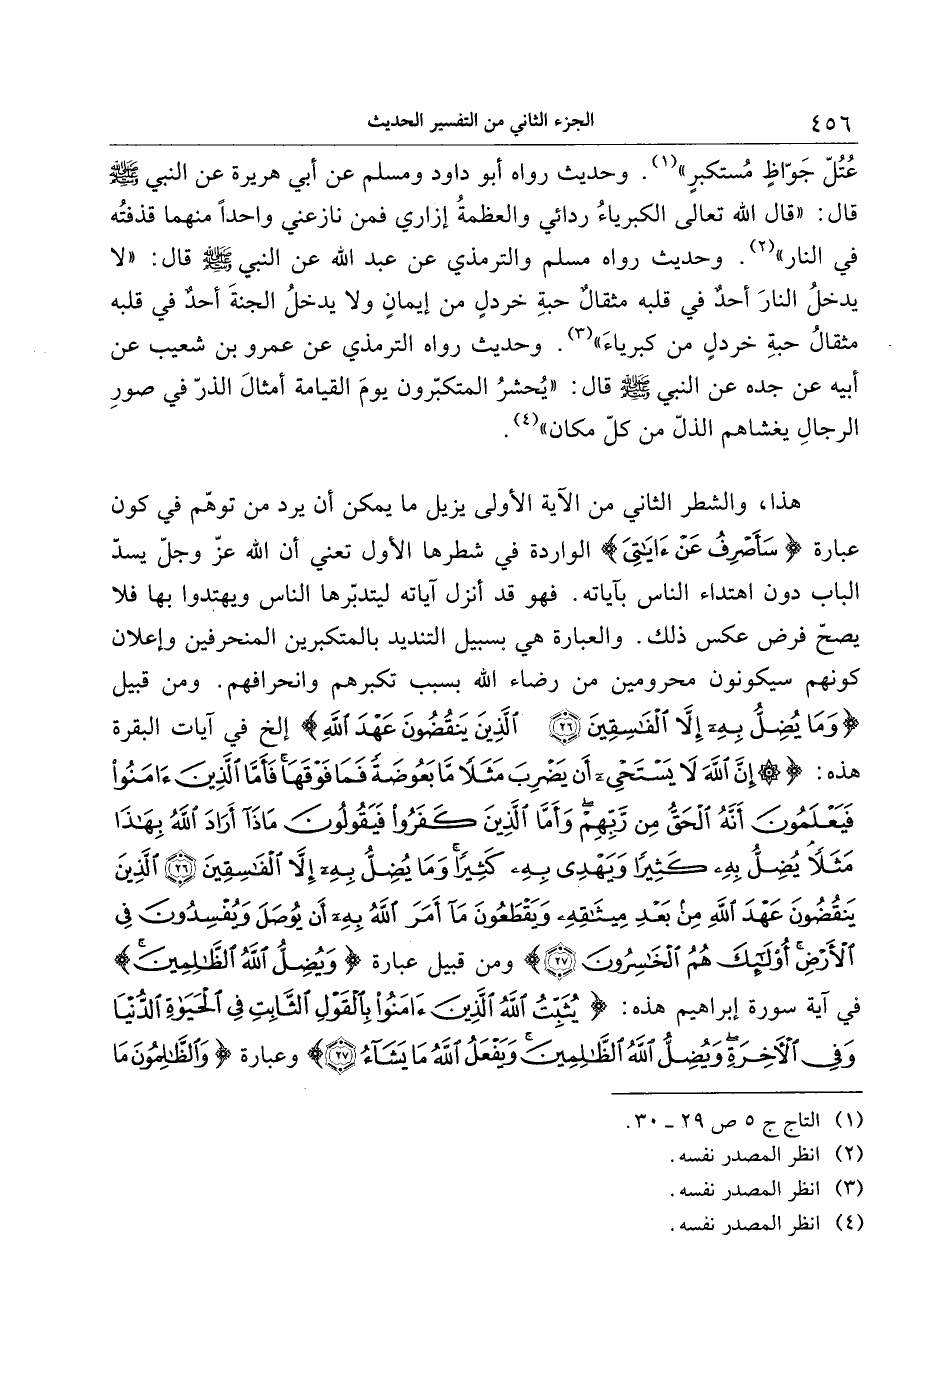 ٤٥٦ الجزء الثاني من التفسير الحديث
عُتُلّ جَوّاظٍ مُستكبرٍ»(١). وحديث رواه أبو داود ومسلم عن أبي هريرة عن النبي ﷺ
قال: «قال الله تعالى الكبرياءُ ردائي والعظمةُ إزاري فمن نازعني واحداً منهما قذفتُه
في النار»(٢). وحديث رواه مسلم والترمذي عن عبد الله عن النبي ﷺ قال: «لا
يدخلُ النارَ أحدٌ في قلبه مثقالُ حبةِ خردلٍ من إيمانٍ ولا يدخلُ الجنةَ أحدٌ في قلبه
مثقالُ حبةِ خردلٍ من كبرياءَ»(٣). وحديث رواه الترمذي عن عمرو بن شعيب عن
أبيه عن جده عن النبي ﷺ قال: «يُحشرُ المتكبّرون يومَ القيامة أمثالَ الذرّ في صورِ
الرجالِ يغشاهم الذلّ من كلّ مكان»(٤).
هذا، والشطر الثاني من الآية الأولى يزيل ما يمكن أن يرد من توهّم في كون
عبارة ﴿سَأَصْرِفُ عَنْ ءَايَٰتِيَ﴾ الواردة في شطرها الأول تعني أن الله عزّ وجلّ يسدّ
الباب دون اهتداء الناس بآياته. فهو قد أنزل آياته ليتدبّرها الناس ويهتدوا بها فلا
يصحّ فرض عكس ذلك. والعبارة هي بسبيل التنديد بالمتكبرين المنحرفين وإعلان
كونهم سيكونون محرومين من رضاء الله بسبب تكبرهم وانحرافهم. ومن قبيل
﴿وَمَا يُضِلُّ بِهِۦٓ إِلَّا ٱلْفَٰسِقِينَ ٢٦ ٱلَّذِينَ يَنقُضُونَ عَهْدَ ٱللَّهِ﴾ إلخ في آيات البقرة
هذه: ﴿۞ إِنَّ ٱللَّهَ لَا يَسْتَحْىِۦٓ أَن يَضْرِبَ مَثَلًا مَّا بَعُوضَةً فَمَا فَوْقَهَا ۚ فَأَمَّا ٱلَّذِينَ ءَامَنُوا۟
فَيَعْلَمُونَ أَنَّهُ ٱلْحَقُّ مِن رَّبِّهِمْ ۖ وَأَمَّا ٱلَّذِينَ كَفَرُوا۟ فَيَقُولُونَ مَاذَآ أَرَادَ ٱللَّهُ بِهَٰذَا
مَثَلًا ۘ يُضِلُّ بِهِۦ كَثِيرًا وَيَهْدِى بِهِۦ كَثِيرًا ۚ وَمَا يُضِلُّ بِهِۦٓ إِلَّا ٱلْفَٰسِقِينَ ٢٦ ٱلَّذِينَ
يَنقُضُونَ عَهْدَ ٱللَّهِ مِنۢ بَعْدِ مِيثَٰقِهِۦ وَيَقْطَعُونَ مَآ أَمَرَ ٱللَّهُ بِهِۦٓ أَن يُوصَلَ وَيُفْسِدُونَ فِى
ٱلْأَرْضِ ۚ أُو۟لَٰٓئِكَ هُمُ ٱلْخَٰسِرُونَ ٢٧﴾ ومن قبيل عبارة ﴿وَيُضِلُّ ٱللَّهُ ٱلظَّٰلِمِينَ ۚ﴾
في آية سورة إبراهيم هذه: ﴿يُثَبِّتُ ٱللَّهُ ٱلَّذِينَ ءَامَنُوا۟ بِٱلْقَوْلِ ٱلثَّابِتِ فِى ٱلْحَيَوٰةِ ٱلدُّنْيَا
وَفِى ٱلْءَاخِرَةِ ۖ وَيُضِلُّ ٱللَّهُ ٱلظَّٰلِمِينَ ۚ وَيَفْعَلُ ٱللَّهُ مَا يَشَآءُ ٢٧﴾ وعبارة ﴿وَٱلظَّٰلِمُونَ مَا
(١) التاج ج ٥ ص ٢٩ ـ ٣٠.
(٢) انظر المصدر نفسه.
(٣) انظر المصدر نفسه.
(٤) انظر المصدر نفسه.